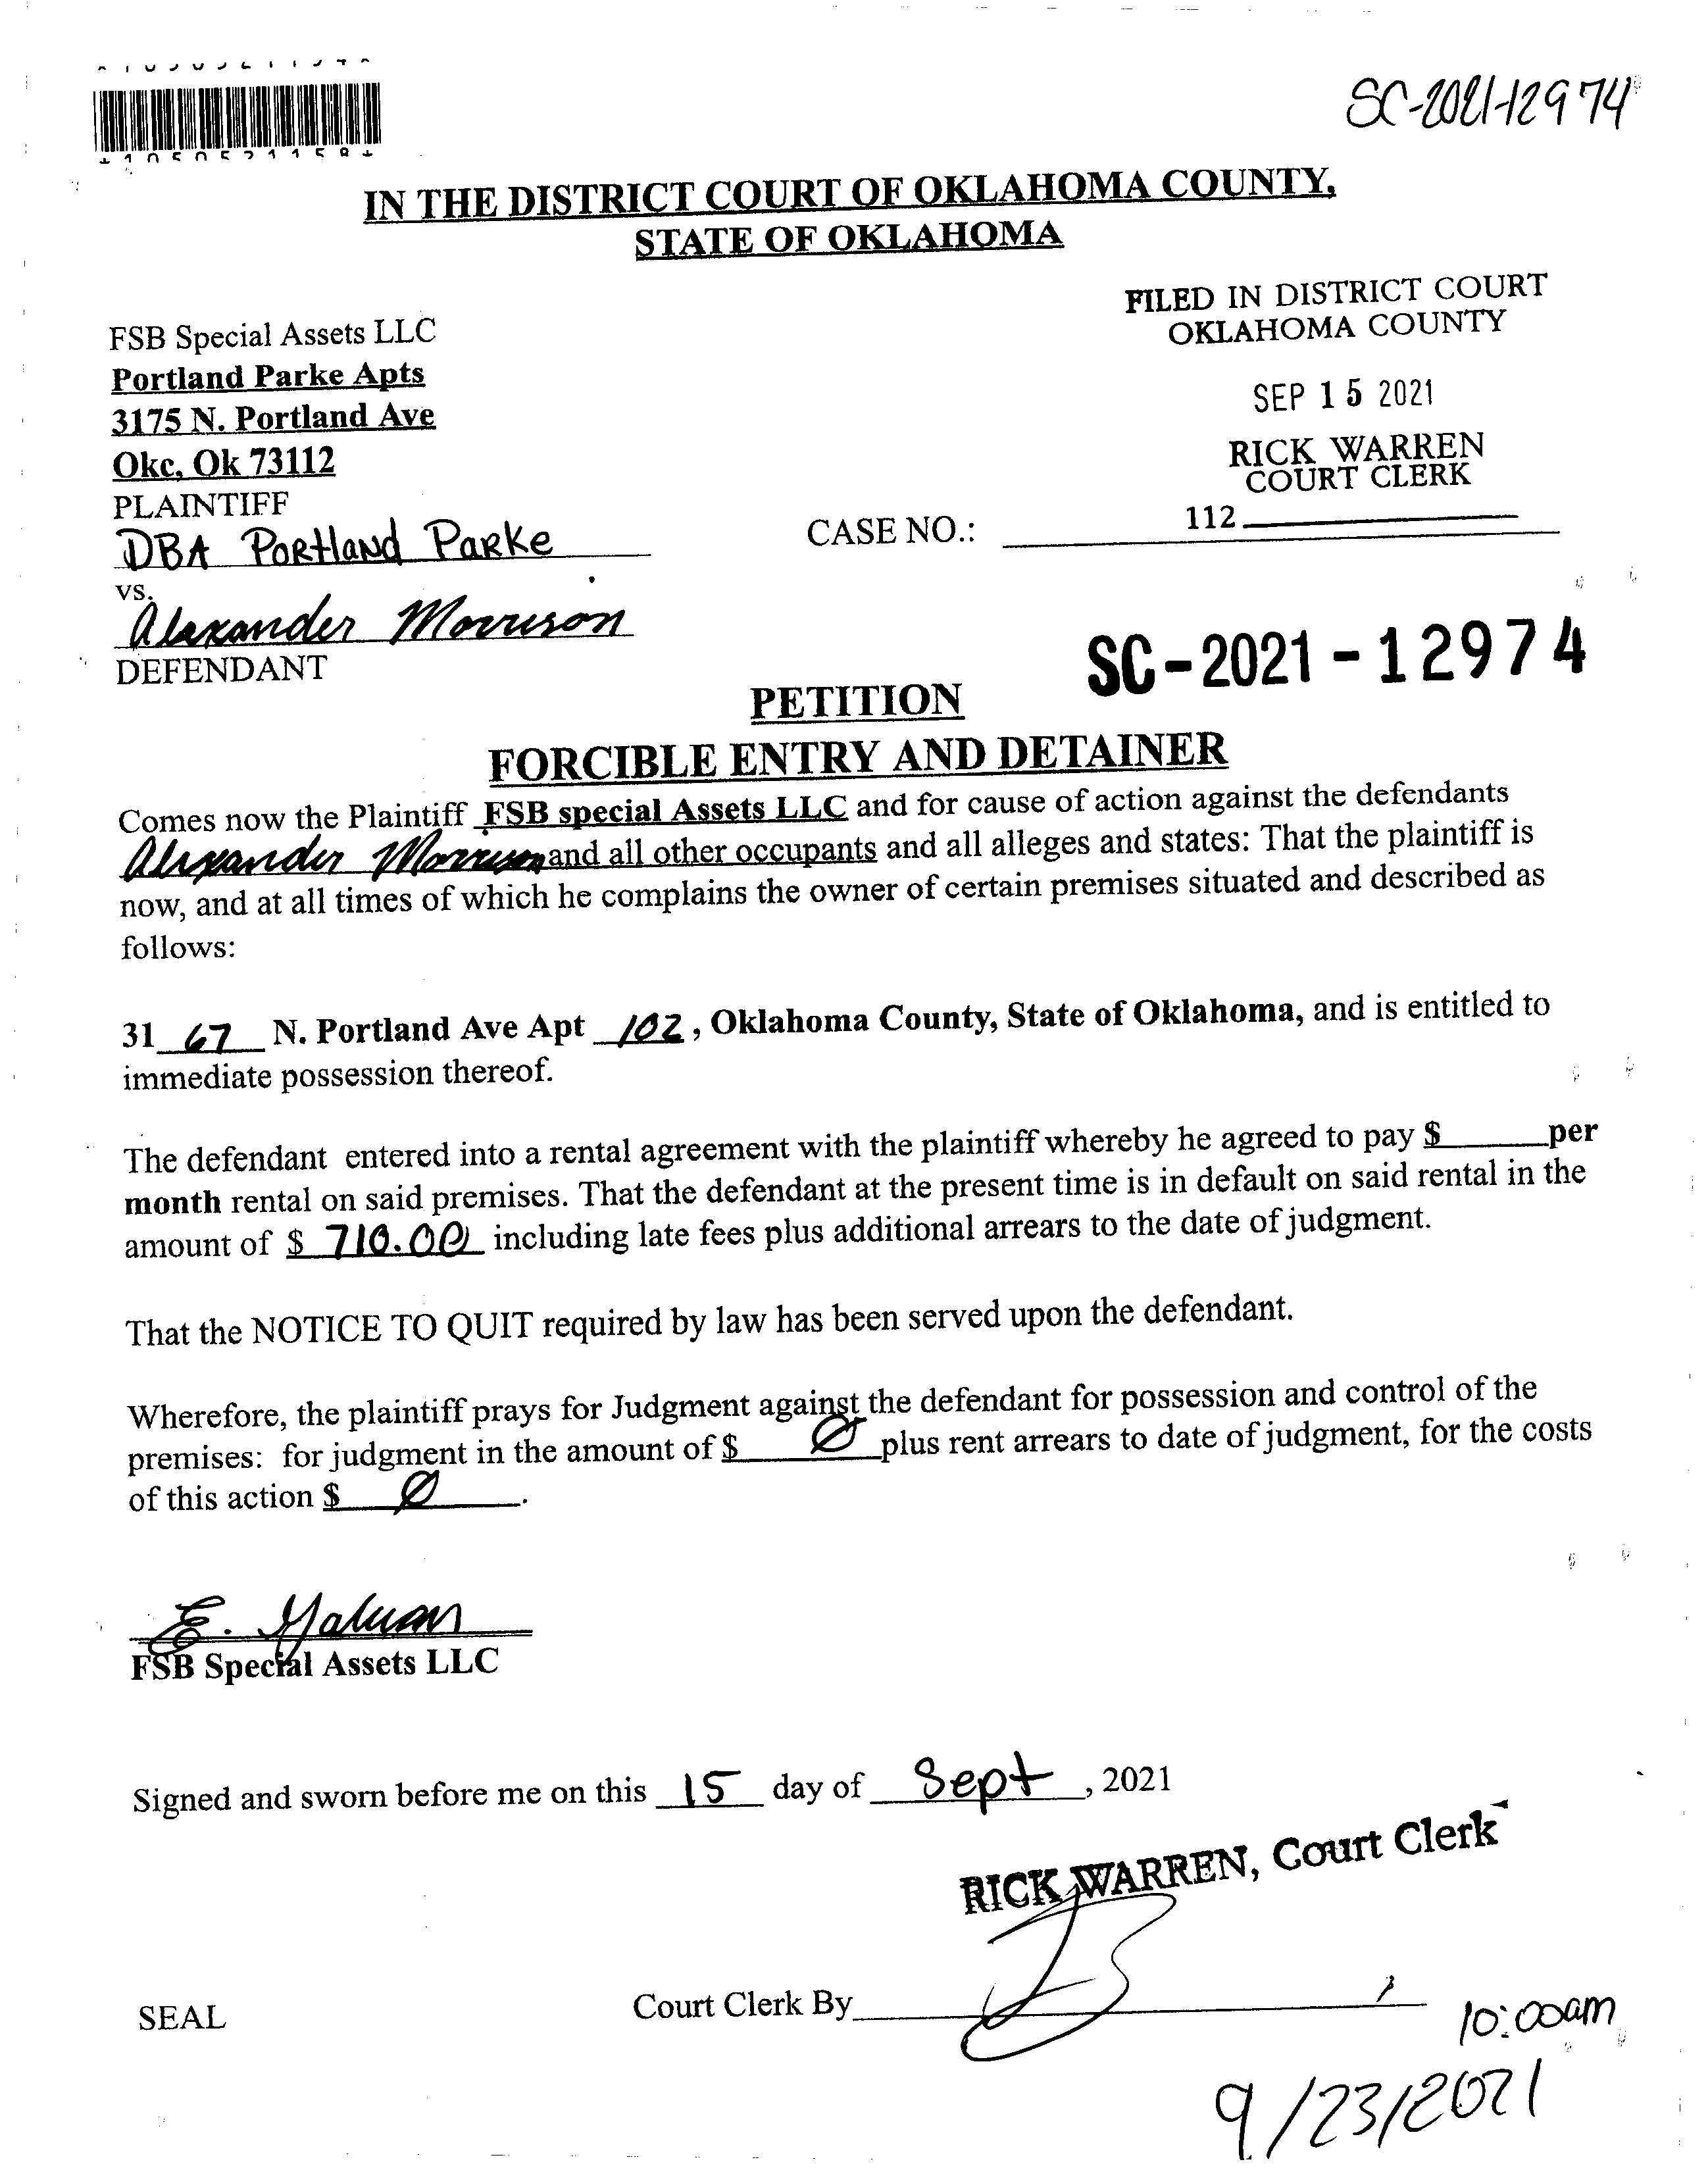 SC-2021-12974
IN THE DISTRICT COURT OF OKLAHOMA COUNTY,
STATE OF OKLAHOMA
FILED IN DISTRICT COURT
OKLAHOMA COUNTY
SEP 15 2021
RICK WARREN
COURT CLERK
112
FSB Special Assets LLC
Portland Parke Apts
3175 N. Portland Ave
Okc, Ok 73112
PLAINTIFF
DBA Portland Parke
CASE NO.:
vs.
Alexander Morrison
DEFENDANT
SC-2021-12974
PETITION
FORCIBLE ENTRY AND DETAINER
Comes now the Plaintiff FSB special Assets LLC and for cause of action against the defendants
Alexander Morrison and all other occupants and all alleges and states: That the plaintiff is
now, and at all times of which he complains the owner of certain premises situated and described as
follows:
31 67 N. Portland Ave Apt 102, Oklahoma County, State of Oklahoma, and is entitled to
immediate possession thereof.
The defendant entered into a rental agreement with the plaintiff whereby he agreed to pay $ per
month rental on said premises. That the defendant at the present time is in default on said rental in the
amount of $ 710.00 including late fees plus additional arrears to the date of judgment.
That the NOTICE TO QUIT required by law has been served upon the defendant.
Wherefore, the plaintiff prays for Judgment against the defendant for possession and control of the
premises: for judgment in the amount of $ Ø plus rent arrears to date of judgment, for the costs
of this action $ Ø.
E.
FSB Special Assets LLC
Signed and sworn before me on this 15 day of Sept, 2021
RICK WARREN, Court Clerk
SEAL
Court Clerk By
10:00am
9/23/2021